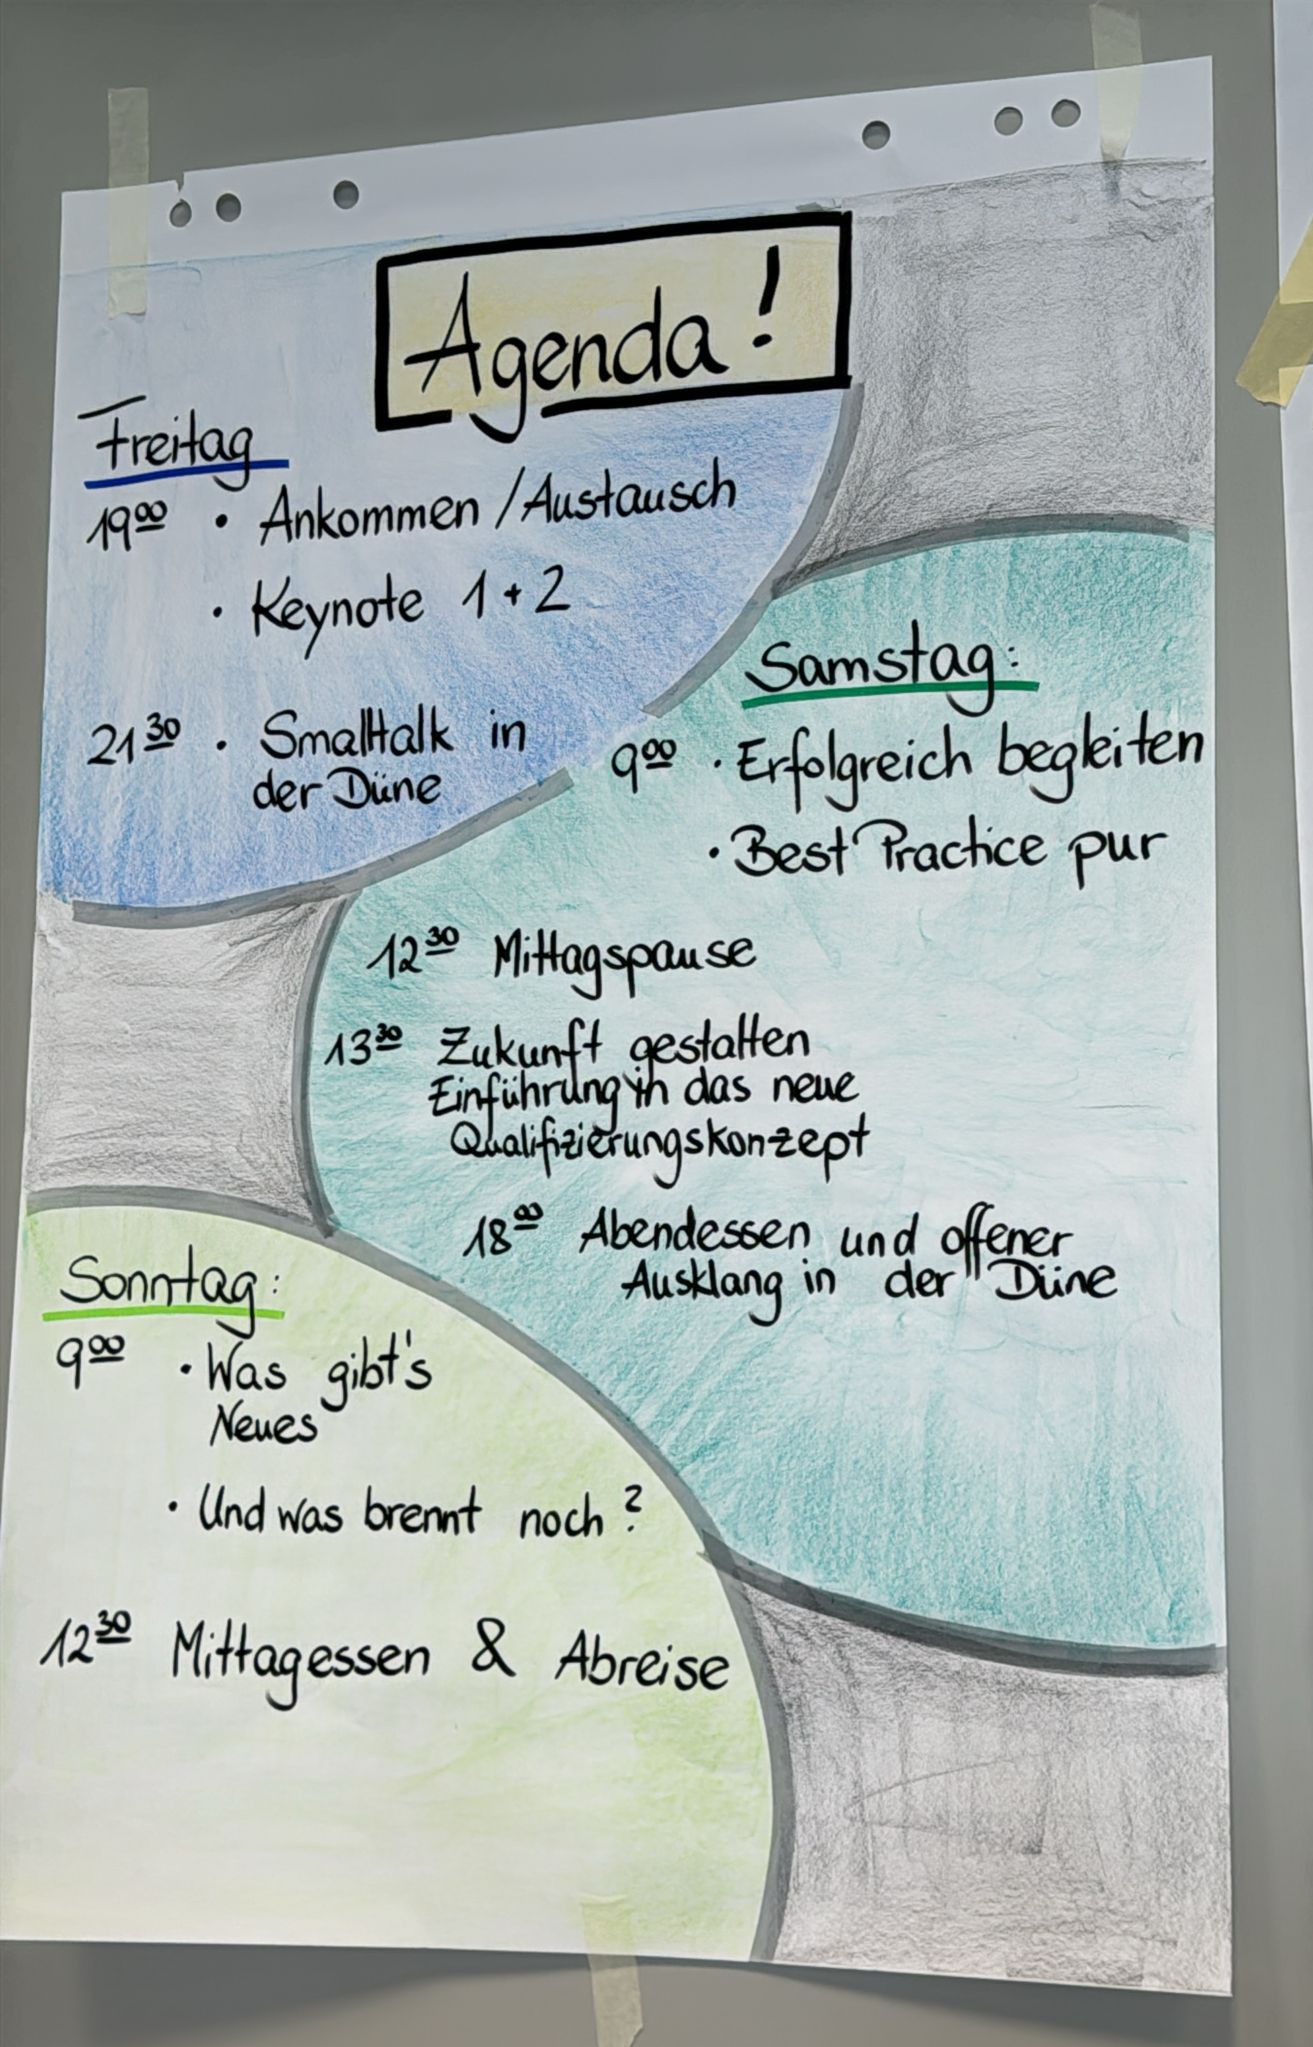 Agenda!
Freitag
19⁰⁰ • Ankommen / Austausch
• Keynote 1 + 2
21³⁰ • Smalltalk in
der Düne
Samstag:
9⁰⁰ • Erfolgreich begleiten
• Best Practice pur
12³⁰ Mittagspause
13³⁰ Zukunft gestalten
Einführung in das neue
Qualifizierungskonzept
18⁰⁰ Abendessen und offener
Ausklang in der Düne
Sonntag:
9⁰⁰ • Was gibt's
Neues
• Und was brennt noch?
12³⁰ Mittagessen & Abreise